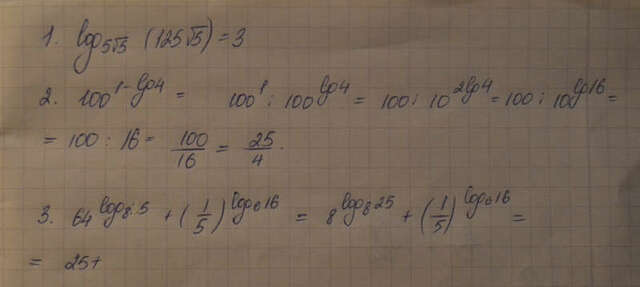 1. log_{5√5} (125√5) = 3
2. 100^{1-lg4} = 100^1 : 100^{lg4} = 100 : 10^{2lg4} = 100 : 10^{lg16} =
= 100 : 16 = \frac{100}{16} = \frac{25}{4}.
3. 64^{log_8 5} + (\frac{1}{5})^{log_6 16} = 8^{log_8 25} + (\frac{1}{5})^{log_6 16} =
= 25+